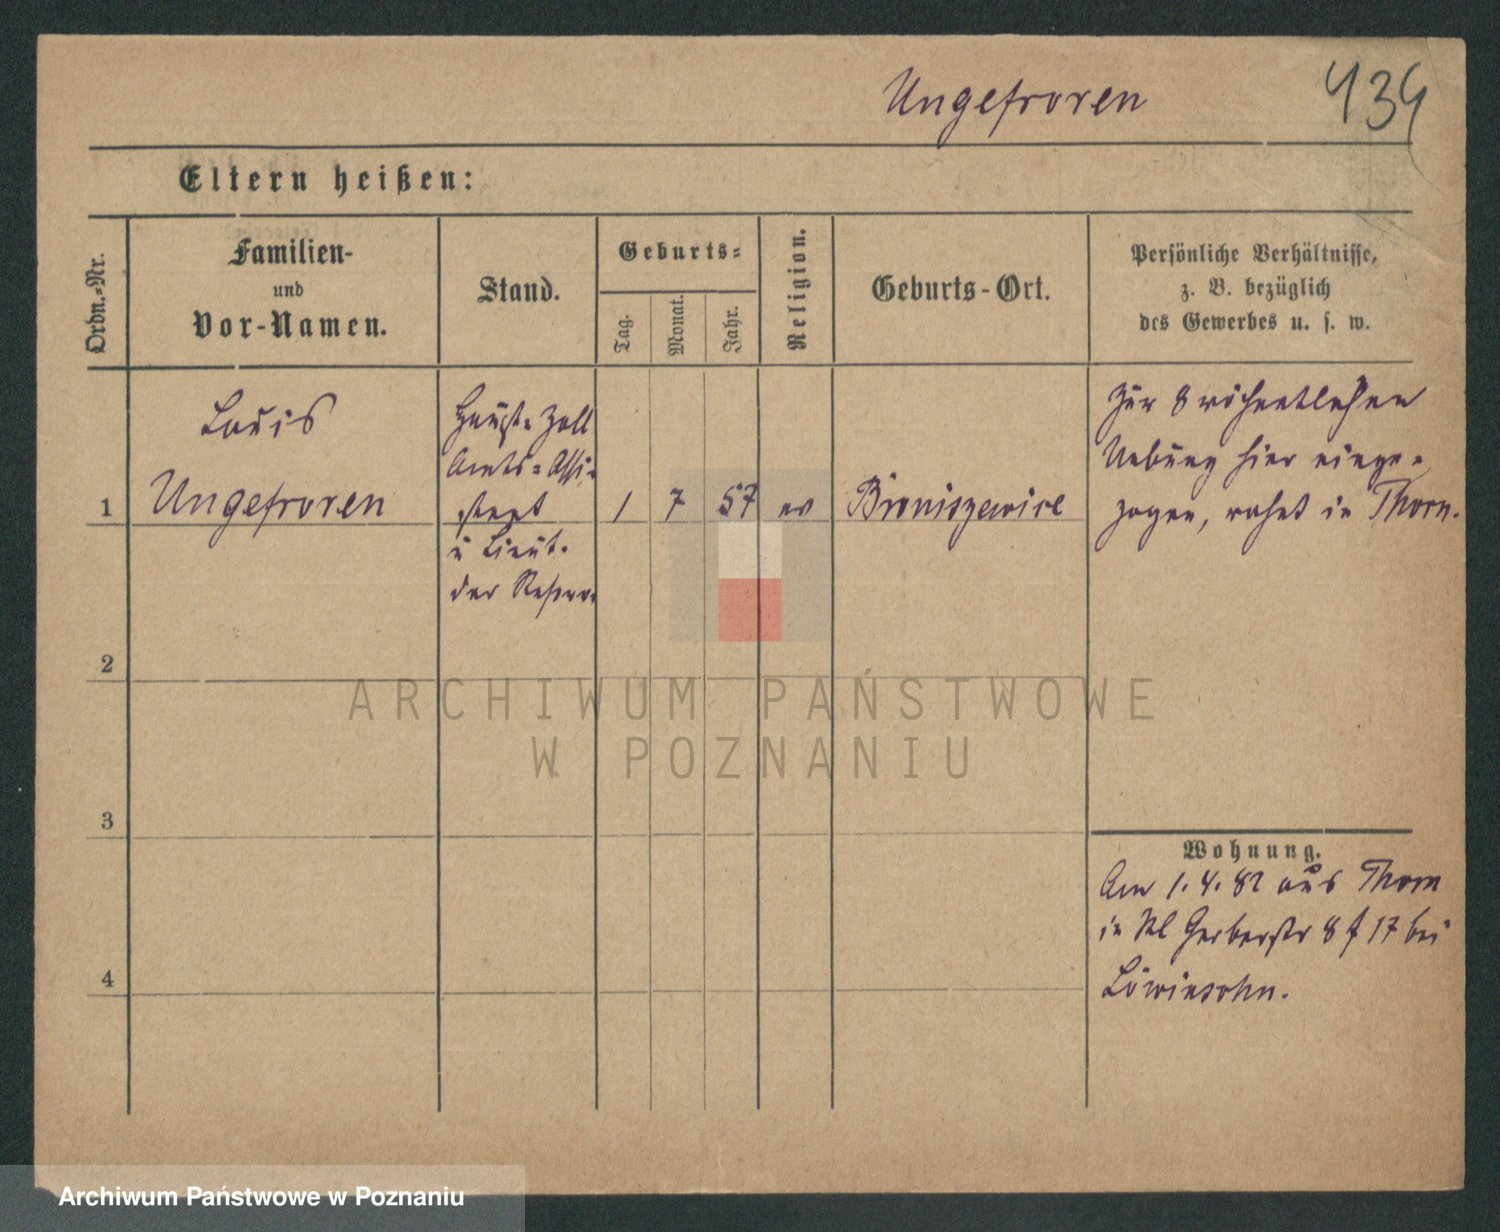 Ungefroren 434
Eltern heißen:
Ordn.-Nr.
Familien-
und
Vor-Namen.
Stand.
Geburts-
Tag.
Monat.
Jahr.
Religion.
Geburts-Ort.
Persönliche Verhältnisse,
z. B. bezüglich
des Gewerbes u. s. w.
1
Louis
Ungefroren
Haupt-Zoll
Amts-Assi-
stent
u Lieut.
der Reserve
1 7 57 ev
Broniszewice
Zur 8 wöchentlichen
Uebung hier einge-
zogen, wohnt in Thorn.
2
3
4
Wohnung.
Am 1.4.82 aus Thorn
in Kl Gerberstr 8 17 bei
Löwinsohn.
ARCHIWUM PAŃSTWOWE
W POZNANIU
Archiwum Państwowe w Poznaniu